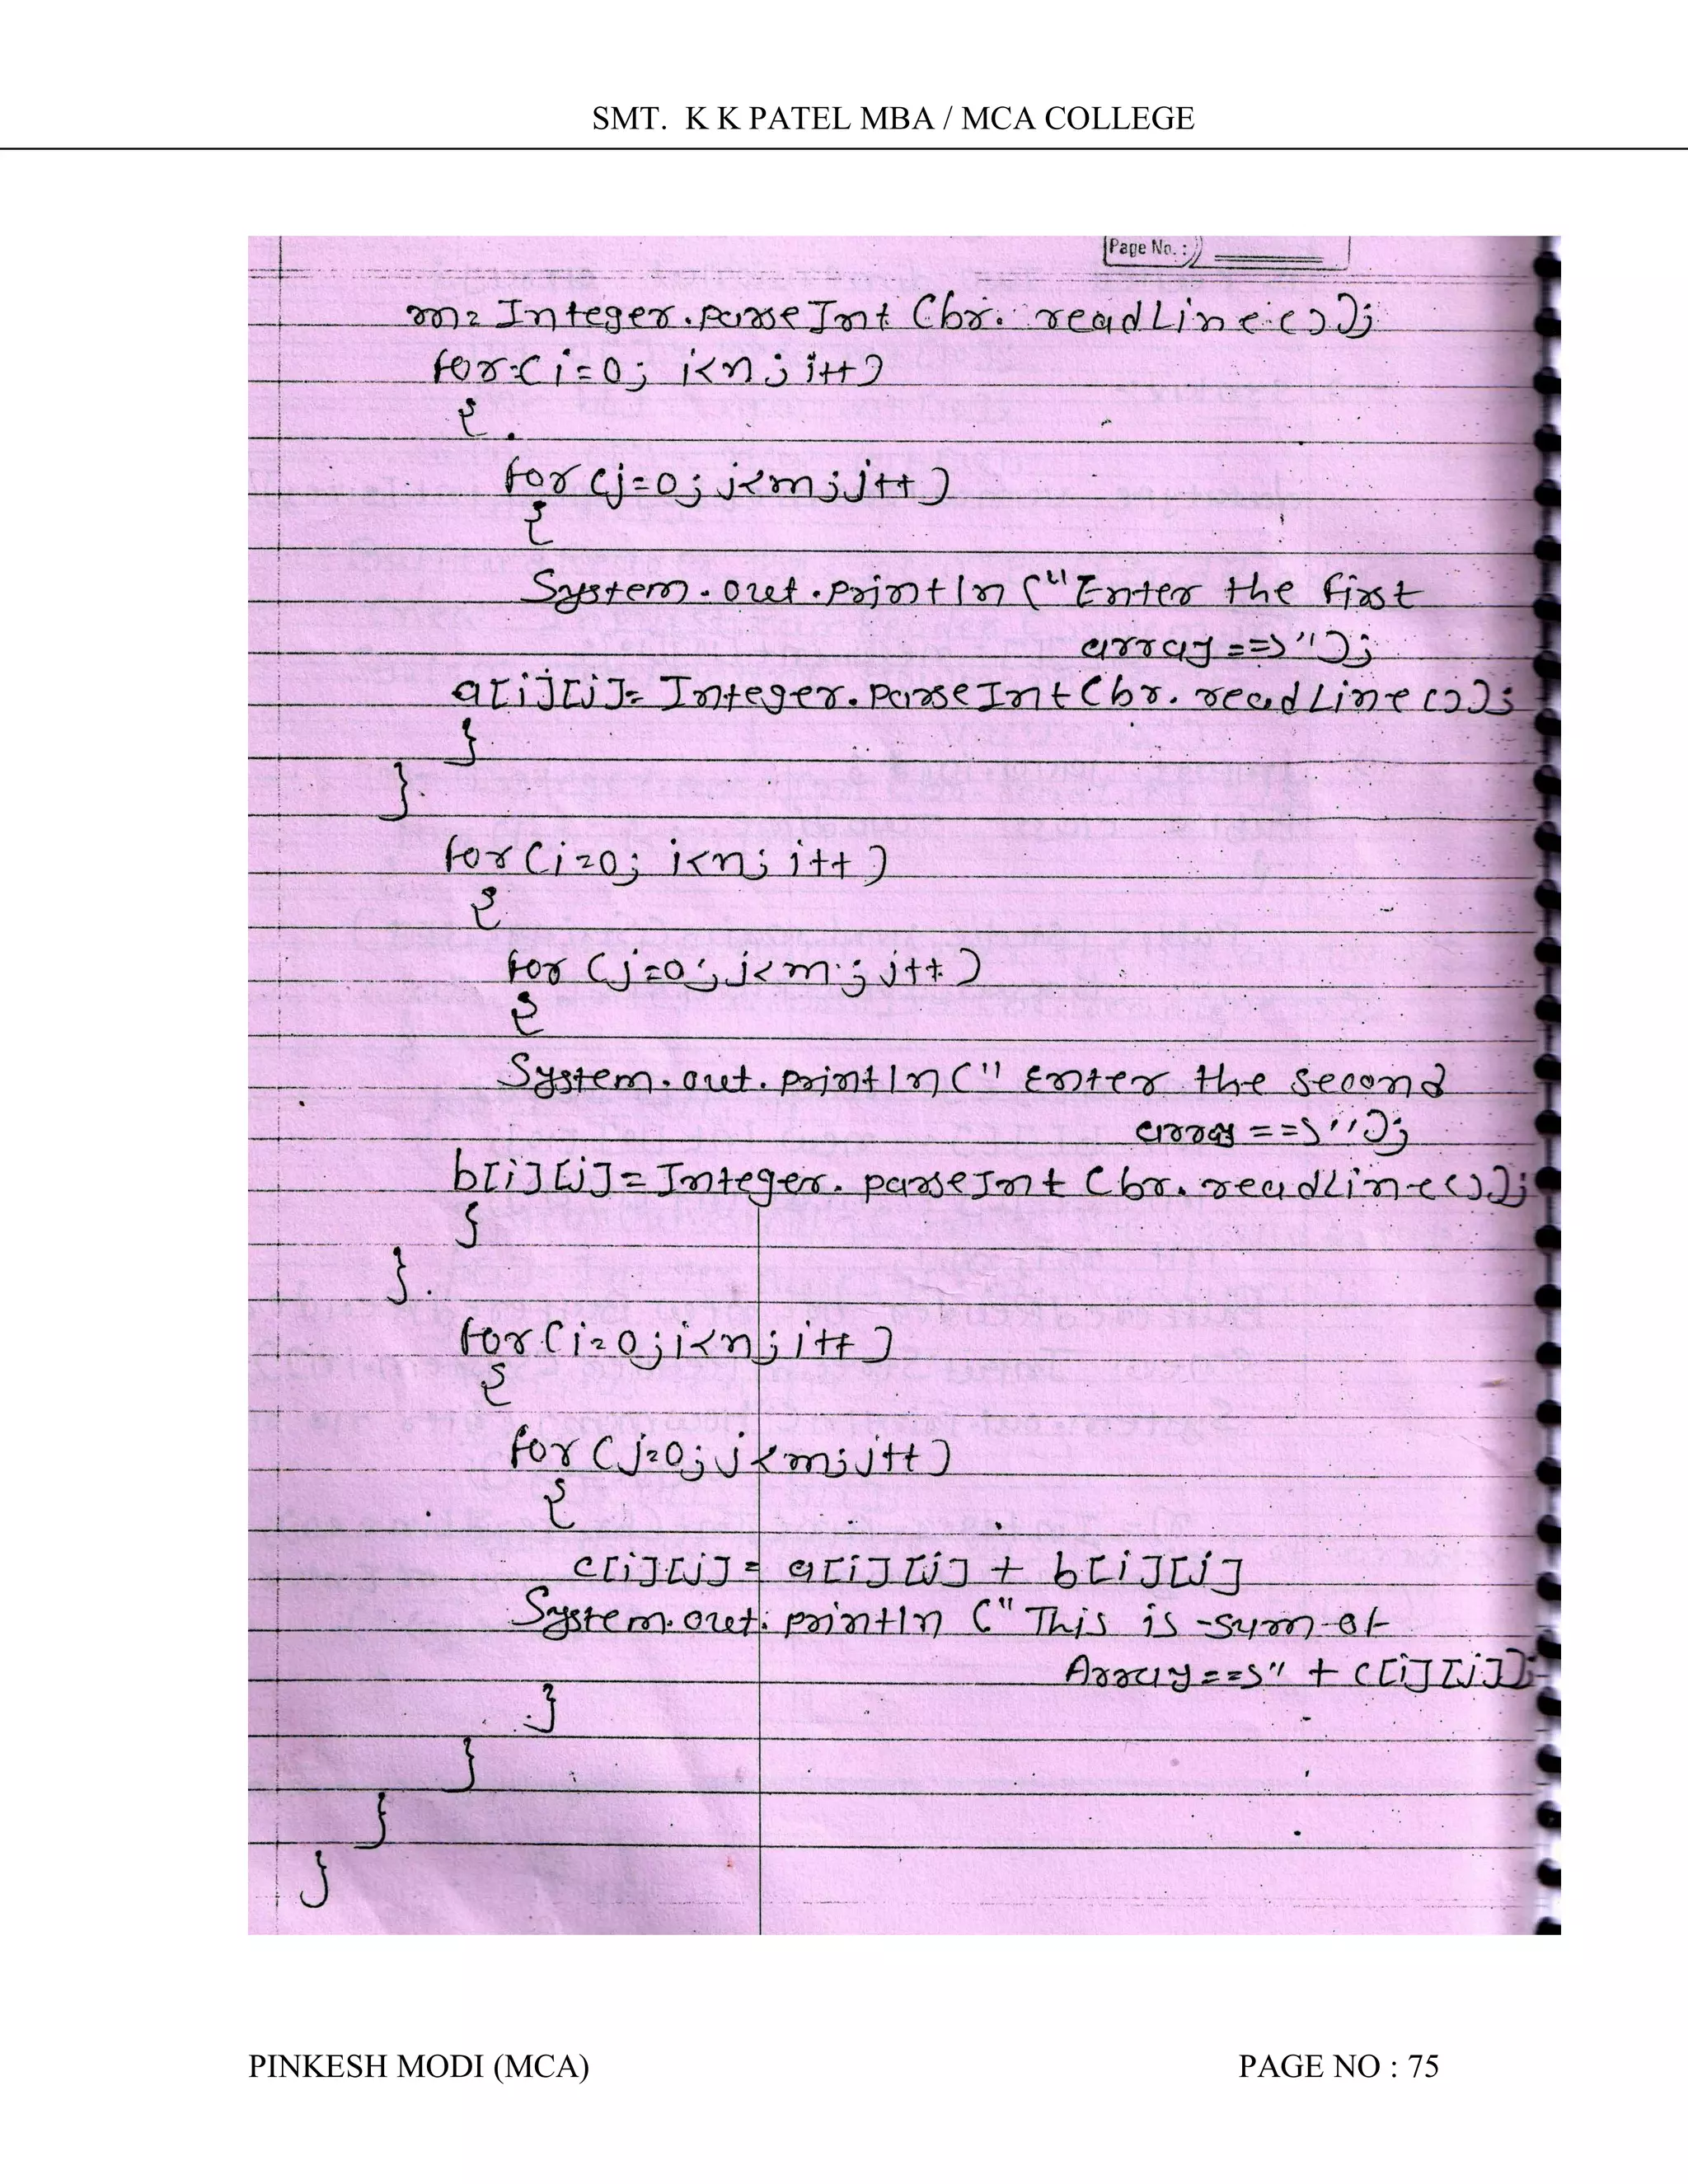 SMT. K K PATEL MBA / MCA COLLEGE
Page No. :
m= Integer.parseInt (br. readLine());
for( i=0; i<n; i++)
{
for (j=0; j<m; j++)
{
System.out.println ("Enter the first
array ==>");
a[i][j]= Integer.parseInt (br. readLine());
}
}
for (i=0; i<n; i++)
{
for (j=0; j<m; j++)
{
System.out.println (" Enter the second
array ==>");
b[i][j]= Integer. parseInt (br. readLine());
}
}
for (i=0; i<n; i++)
{
for (j=0; j<m; j++)
{
c[i][j]= a[i][j] + b[i][j]
System.out.println ("This is sum of
Array ==>" + c[i][j]);
}
}
}
}
PINKESH MODI (MCA) PAGE NO : 75